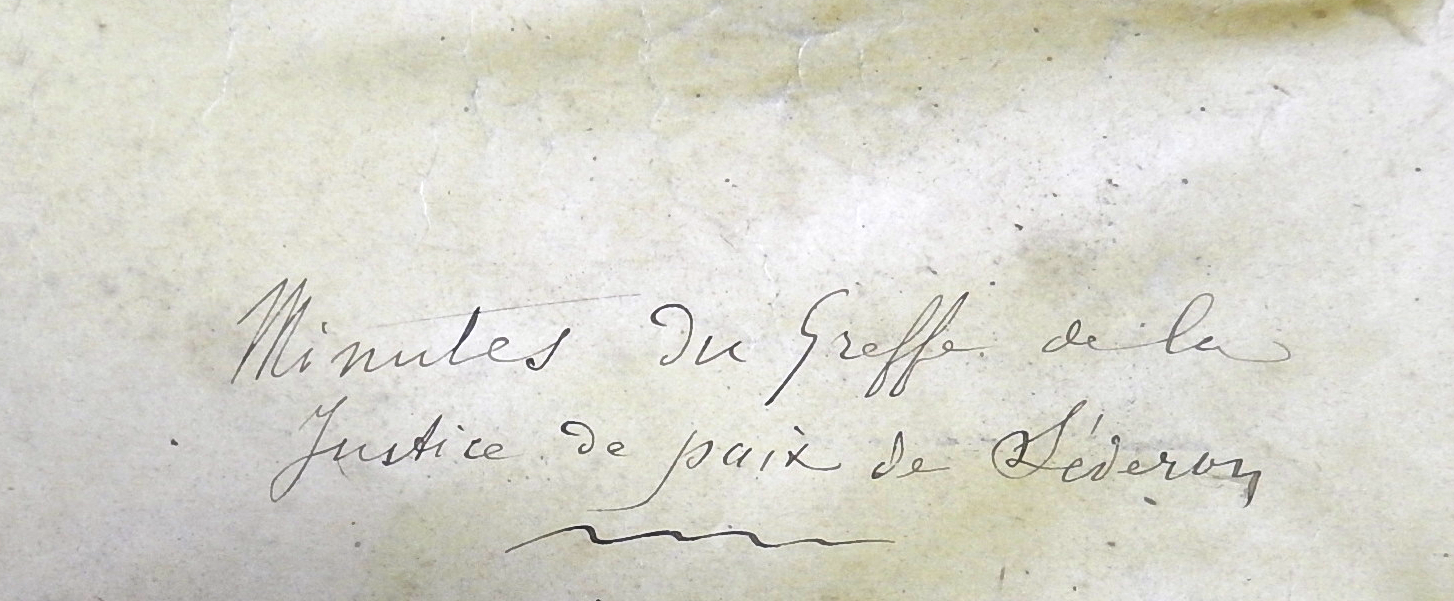 Minutes du Greffe de la
Justice de paix de Séderon